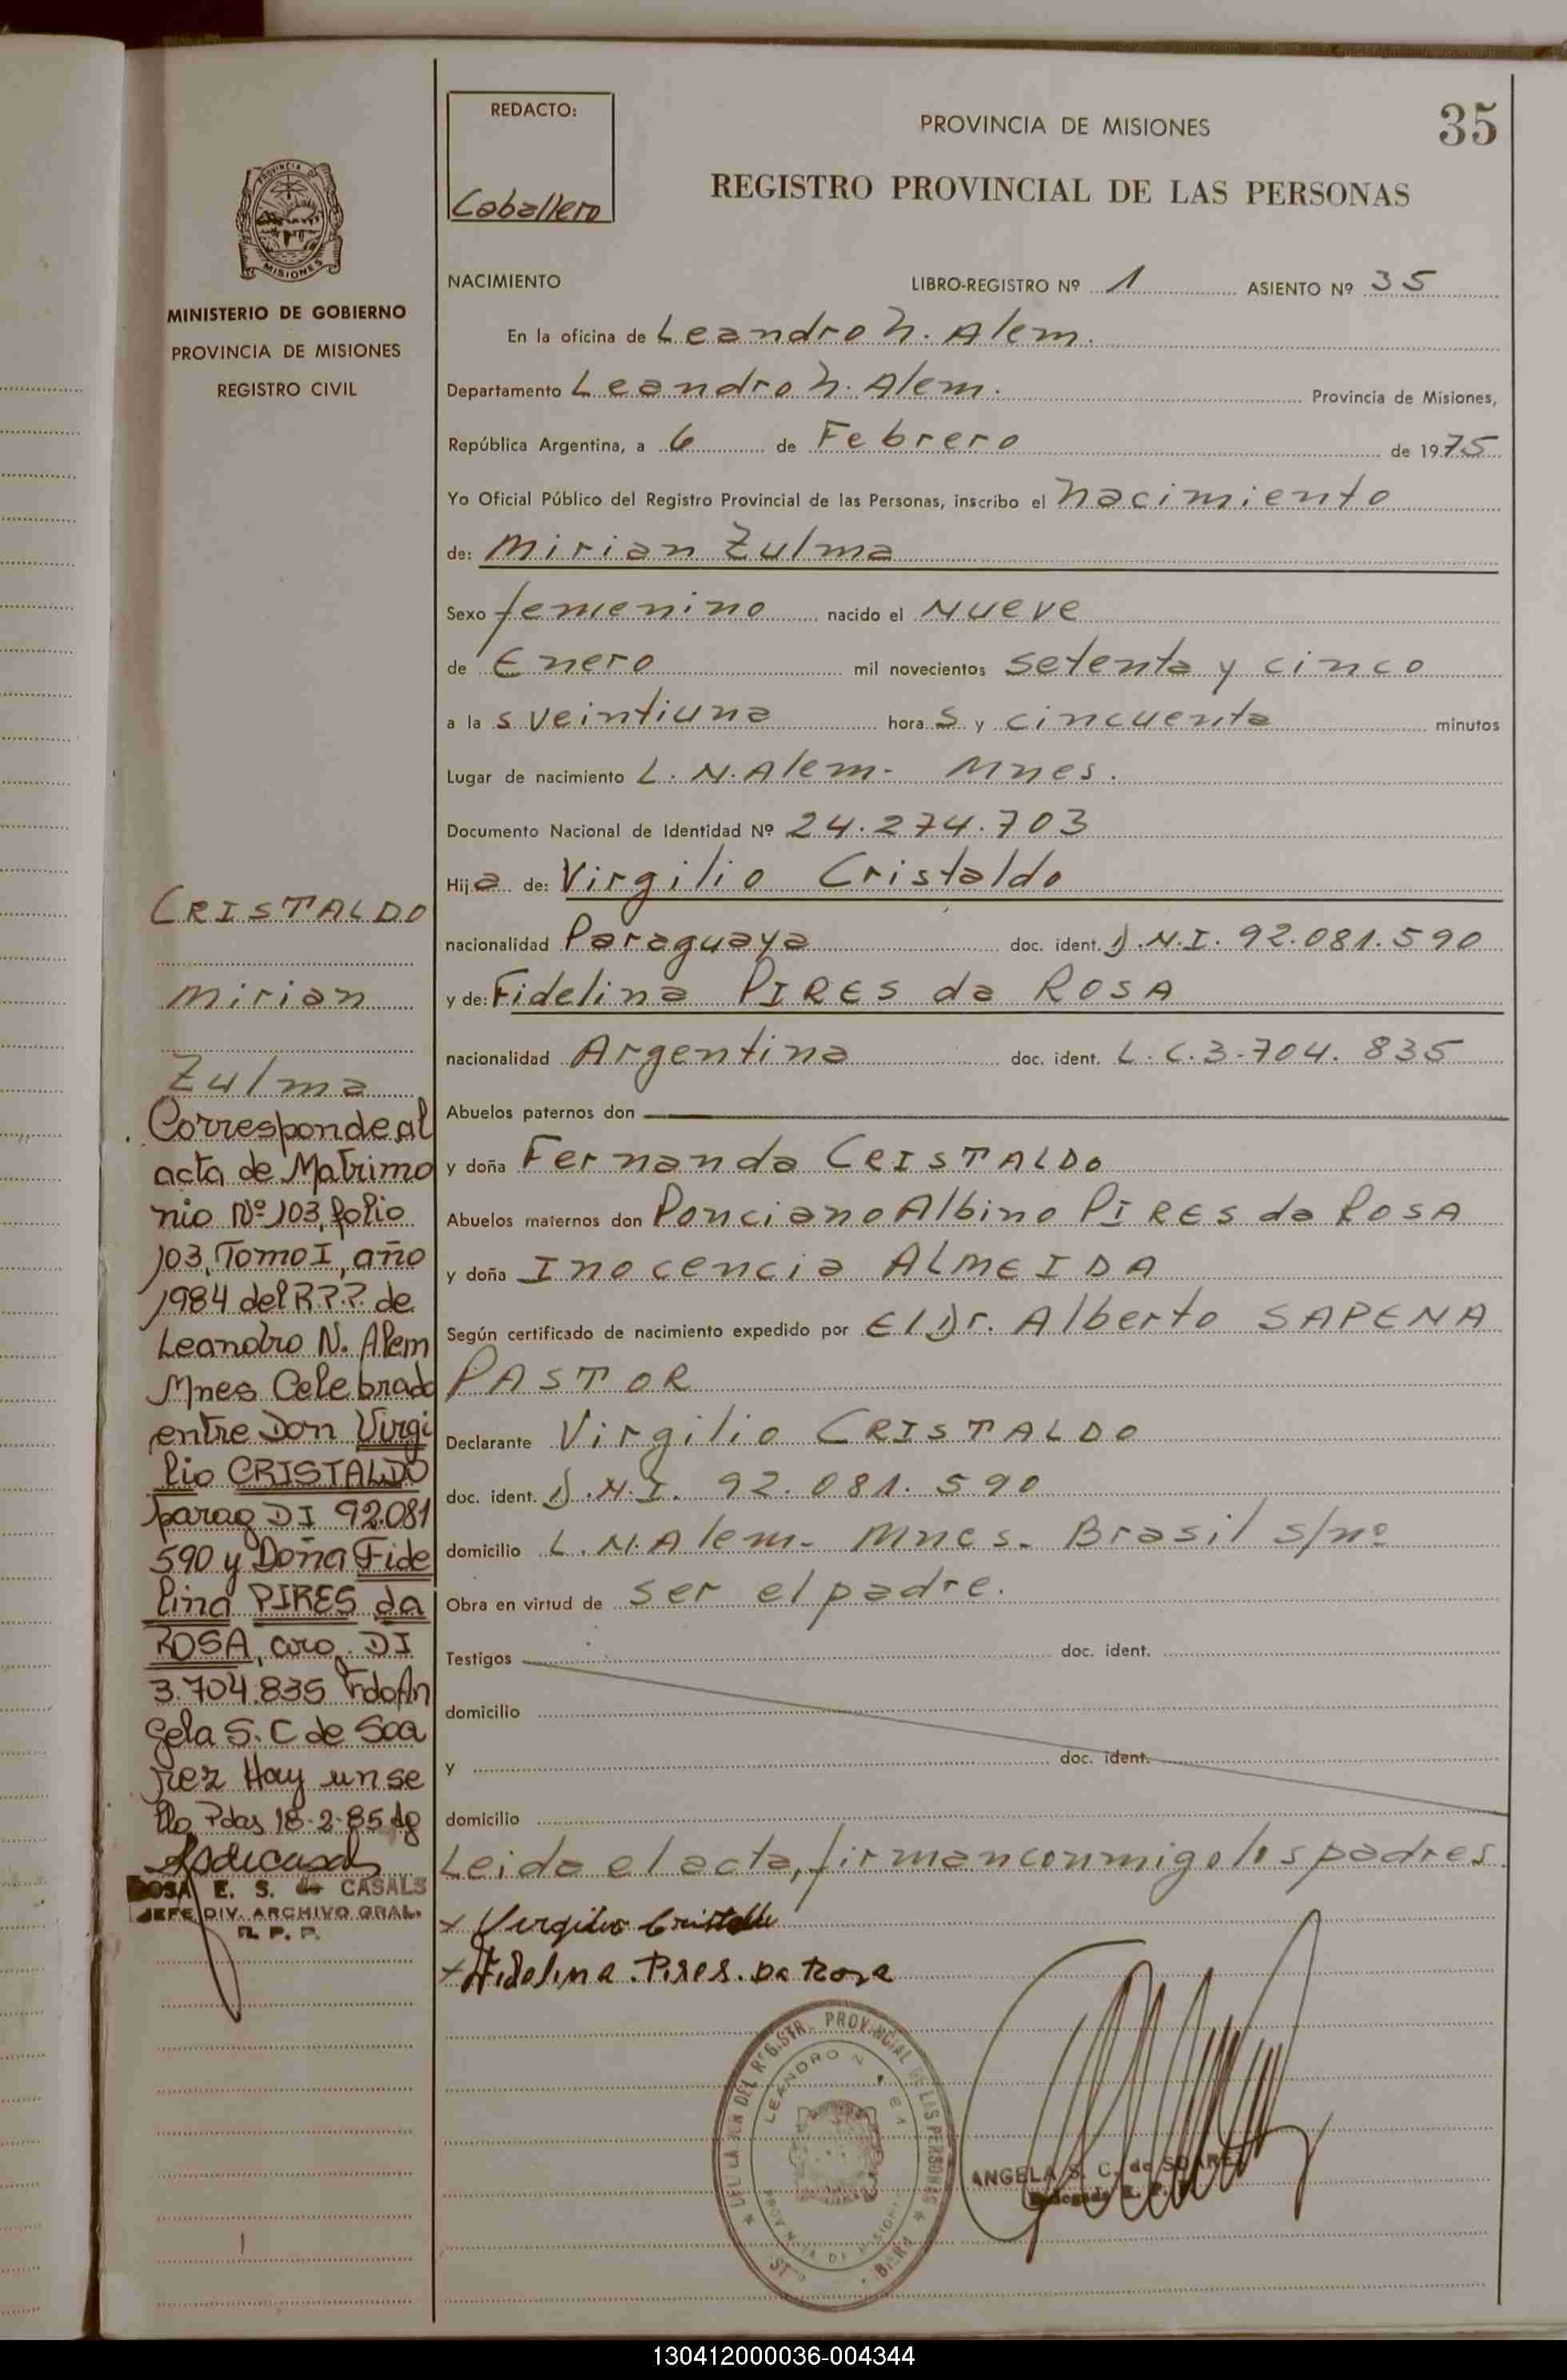 REDACTO:
Caballero
PROVINCIA DE MISIONES
35
REGISTRO PROVINCIAL DE LAS PERSONAS
PROVINCIA DE
MISIONES
MINISTERIO DE GOBIERNO
PROVINCIA DE MISIONES
REGISTRO CIVIL
NACIMIENTO LIBRO-REGISTRO Nº 1 ASIENTO Nº 35
En la oficina de Leandro N. Alem.
Departamento Leandro N. Alem. Provincia de Misiones,
República Argentina, a 6 de Febrero de 1975
Yo Oficial Público del Registro Provincial de las Personas, inscribo el nacimiento
de: Mirian Zulma
Sexo femenino nacido el Nueve
de Enero mil novecientos setenta y cinco
a la s veintiuna hora s y cincuenta minutos
Lugar de nacimiento L. N. Alem - Mnes.
Documento Nacional de Identidad Nº 24.274.703
Hija de: Virgilio Cristaldo
nacionalidad Paraguaya doc. ident. D.N.I. 92.081.590
y de: Fidelina PIRES da ROSA
nacionalidad Argentina doc. ident. L.C. 3.704.835
Abuelos paternos don
y doña Fernanda CRISTALDO
Abuelos maternos don Ponciano Albino PIRES da ROSA
y doña Inocencia ALMEIDA
Según certificado de nacimiento expedido por El Dr. Alberto SAPENA
PASTOR
Declarante Virgilio CRISTALDO
doc. ident. D.N.I. 92.081.590
domicilio L.N.Alem - Mnes - Brasil s/nº
Obra en virtud de ser el padre.
Testigos doc. ident.
domicilio
y doc. ident.
domicilio
Leida el acta, firman conmigo los padres.
x Virgilio Cristaldo
x Fidelina. Pires. Da Rosa
CRISTALDO
Mirian
Zulma
Corresponde al
acta de Matrimo
nio Nº 103, folio
103, Tomo I, año
1984 del R.P.P. de
Leandro N. Alem
Mnes Celebrado
entre Don Virgi
lio CRISTALDO
parag DI 92.081
590 y Doña Fide
lina PIRES da
ROSA, DI
3.704.835 Fdo An
gela S. C de Soa
rez Hay un se
llo Pdas 18-2-85
ROSA E. S. de CASALS
JEFE DIV. ARCHIVO GRAL.
R. P. P.
PROVINCIAL DE LAS PERSONAS
LEANDRO N
ANGELA S. C. de SOAREZ
Delegada R. P. P.
130412000036-004344